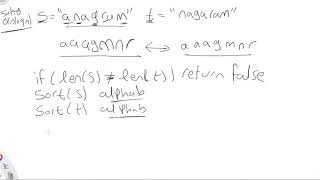 s = "anagram" t = "nagaram"
aaagmnr ⟷ aaagmnr
if (len(s) ≠ len(t)) return false
sort(s) alphab
sort(t) alphab